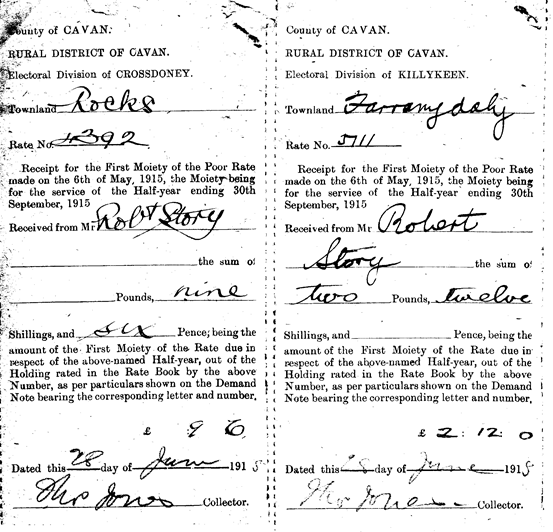 County of CAVAN.
RURAL DISTRICT OF CAVAN.
Electoral Division of CROSSDONEY.
Townland Rocks
Rate No. 4392
Receipt for the First Moiety of the Poor Rate
made on the 6th of May, 1915, the Moiety being
for the service of the Half-year ending 30th
September, 1915
Received from Mr Robt Story
the sum of
Pounds, nine
Shillings, and six Pence; being the
amount of the First Moiety of the Rate due in
respect of the above-named Half-year, out of the
Holding rated in the Rate Book by the above
Number, as per particulars shown on the Demand
Note bearing the corresponding letter and number.
£ 9 6
Dated this 28 day of June 1915
Thos Jones Collector.
County of CAVAN.
RURAL DISTRICT OF CAVAN.
Electoral Division of KILLYKEEN.
Townland Farranydaly
Rate No. 5711
Receipt for the First Moiety of the Poor Rate
made on the 6th of May, 1915, the Moiety being
for the service of the Half-year ending 30th
September, 1915
Received from Mr Robert
Story the sum of
two Pounds, twelve
Shillings, and Pence; being the
amount of the First Moiety of the Rate due in
respect of the above-named Half-year, out of the
Holding rated in the Rate Book by the above
Number, as per particulars shown on the Demand
Note bearing the corresponding letter and number.
£ 2:12:0
Dated this 28 day of June 1915
Thos Jones Collector.